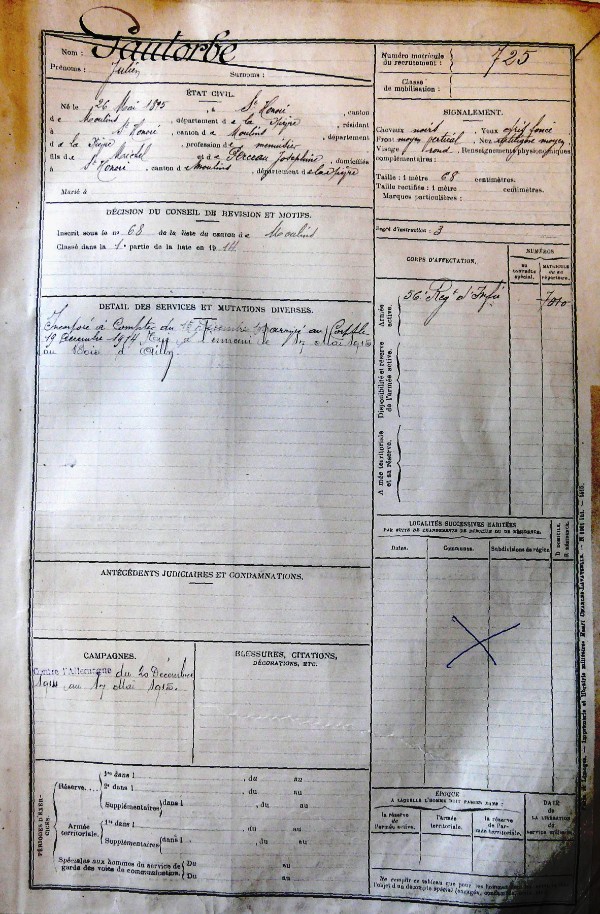 Nom : Pautorbe
Prénoms : Julien Surnoms :
ÉTAT CIVIL.
Né le 26 Mai 1895, à St Honoré, canton
de Moulins, département de la Nièvre, résidant
à St Honoré, canton de Moulins, département
de la Nièvre, profession de
fils de Michel et de Perceau Joséphine, domiciliés
à St Honoré, canton de Moulins, département de la Nièvre
Marié à
DÉCISION DU CONSEIL DE REVISION ET MOTIFS.
Inscrit sous le no 68 de la liste du canton de Moulins
Classé dans la 1e partie de la liste en 1914
DETAIL DES SERVICES ET MUTATIONS DIVERSES.
Incorporé à compter du arrivé au Corps le
19 Décembre 1914 à l'ennemi le 17 Mai 1915
au Bois d'Ailly
ANTÉCÉDENTS JUDICIAIRES ET CONDAMNATIONS.
CAMPAGNES.
Contre l'Allemagne du 20 Décembre
1914 au 17 Mai 1915.
BLESSURES, CITATIONS,
DÉCORATIONS, ETC.
PÉRIODES D'EXERCICES.
Réserve.... 1re dans l , du au
2e dans l , du au
Supplémentaires dans l , du au
Armée territoriale. 1re dans l , du au
Supplémentaires dans l , du au
Spéciales aux hommes du service de garde des voies de communication. Du au
Du au
Numéro matricule du recrutement : 725
Classe de mobilisation :
SIGNALEMENT.
Cheveux noirs, Yeux foncé
Front moyen vertical, Nez rectiligne moyen
Visage rond, Renseignements physionomiques
complémentaires :
Taille : 1 mètre 68 centimètres.
Taille rectifiée : 1 mètre centimètres.
Marques particulières :
Degré d'instruction : 3
CORPS D'AFFECTATION.
NUMÉROS
au contrôle spécial.
matricule ou au répertoire.
Armée active.
56e Regt d'Infie
Disponibilité et réserve de l'armée active.
Armée territoriale et sa réserve.
LOCALITÉS SUCCESSIVES HABITÉES
PAR SUITE DE CHANGEMENTS DE DOMICILE OU DE RÉSIDENCE.
Dates. Communes. Subdivisions de région.
D. DOMICILE. R. RÉSIDENCE.
ÉPOQUE
A LAQUELLE L'HOMME DOIT PASSER DANS :
la réserve de l'armée active.
l'armée territoriale.
la réserve de l'armée territoriale.
DATE de LA LIBÉRATION du service militaire.
Ne remplir ce tableau que pour les hommes
Imprimerie et librairie militaires Henri CHARLES-LAVAUZELLE.